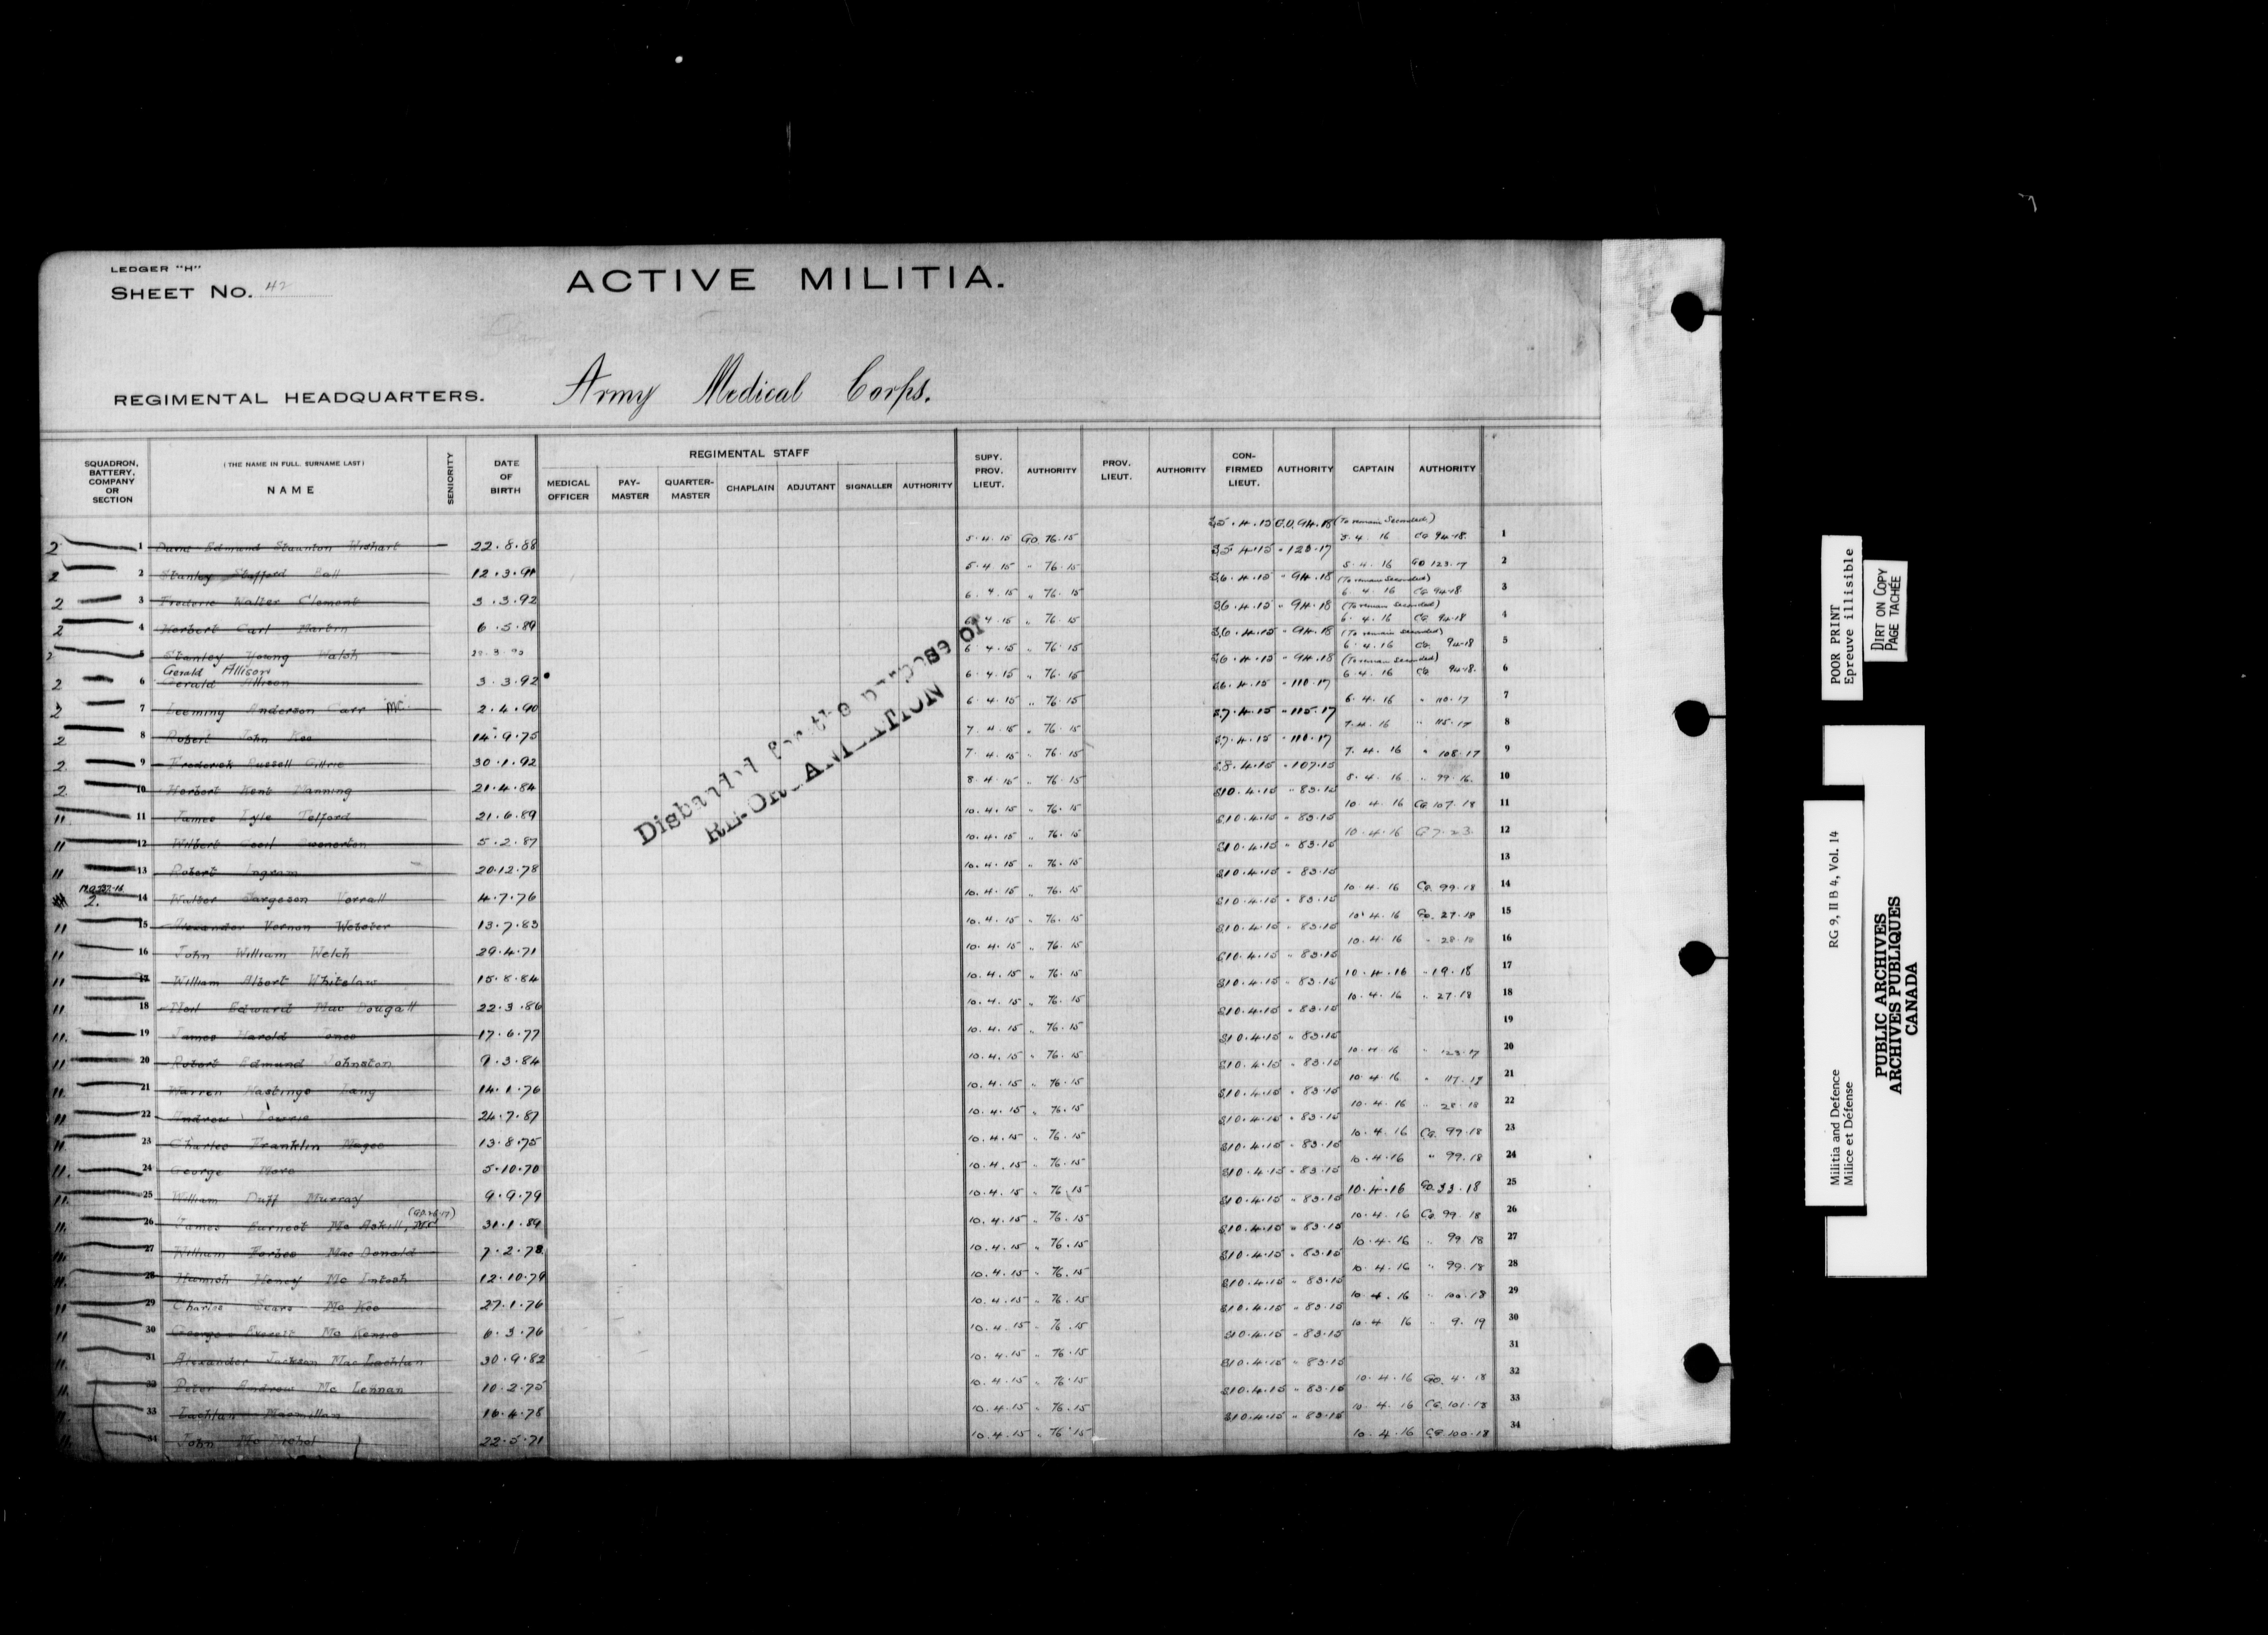 LEDGER "H"
SHEET No. 42
ACTIVE MILITIA.
REGIMENTAL HEADQUARTERS. Army Medical Corps.
SQUADRON, BATTERY, COMPANY OR SECTION
(THE NAME IN FULL. SURNAME LAST) NAME
SENIORITY
DATE OF BIRTH
REGIMENTAL STAFF
MEDICAL OFFICER
PAY-MASTER
QUARTER-MASTER
CHAPLAIN
ADJUTANT
SIGNALLER
AUTHORITY
SUPY. PROV. LIEUT.
AUTHORITY
PROV. LIEUT.
AUTHORITY
CON-FIRMED LIEUT.
AUTHORITY
CAPTAIN
AUTHORITY
2 1 David Edmund Staunton Wishart 22.8.88 5.4.15 GO. 76.15 5.4.15 G.O. 94.18 (To remain Seconded) 5.4.16 CO. 94.18 1
2 2 Stanley Stafford Ball 12.3.91 5.4.15 " 76.15 5.4.15 " 123.17 5.4.16 GO 123.17 2
2 3 Frederic Walter Clement 3.3.92 6.4.15 " 76.15 6.4.15 " 94.18 (To remain Seconded) 6.4.16 CO. 94.18 3
2 4 Herbert Carl Martin 6.5.89 6.4.15 " 76.15 6.4.15 " 94.18 (To remain Seconded) 6.4.16 CO. 94.18 4
2 5 Stanley Young Walsh 6.4.15 " 76.15 6.4.15 " 94.18 (To remain Seconded) 6.4.16 CO. 94.18 5
Gerald Allison
2 6 Gerald Allison 3.3.92 6.4.15 " 76.15 6.4.15 " 94.18 (To remain Seconded) 6.4.16 CO. 94.18. 6
2 7 Leeming Anderson Carr MC. 2.4.90 6.4.15 " 76.15 6.4.15 " 110.17 6.4.16 " 110.17 7
2 8 Robert John Kee 14.9.75 7.4.15 " 76.15 7.4.15 " 115.17 7.4.16 " 115.17 8
2 9 Frederick Russell Gillrie 30.1.92 7.4.15 " 76.15 7.4.15 " 110.17 7.4.16 " 108.17 9
2 10 Herbert Kent Manning 21.4.84 8.4.15 " 76.15 8.4.15 " 107.15 8.4.16 " 99.16. 10
11. 11 James Lyle Telford 21.6.89 10.4.15 " 76.15 10.4.15 " 83.15 10.4.16 CO 107.18 11
11 12 Wilbert Cecil 5.2.87 10.4.15 " 76.15 10.4.15 " 83.15 10.4.16 7.23 12
11 13 Robert Ingram 20.12.78 10.4.15 " 76.15 10.4.15 " 83.15 13
2. 14 Walter Sargeson Vorrall 4.7.76 10.4.15 " 76.15 10.4.15 " 83.15 10.4.16 CO. 99.18 14
11 15 Alexander Vernon Webster 13.7.83 10.4.15 " 76.15 10.4.15 " 83.15 10.4.16 GO. 27.18 15
11 16 John William Welch 29.4.71 10.4.15 " 76.15 10.4.15 " 83.15 10.4.16 " 28.18 16
11 17 William Albert Whitelaw 15.8.84 10.4.15 " 76.15 10.4.15 " 83.15 10.4.16 " 19.18 17
11 18 Neil Edward Mac Dougall 22.3.86 10.4.15 " 76.15 10.4.15 " 83.15 10.4.16 " 27.18 18
11. 19 James Harold Jones 17.6.77 10.4.15 " 76.15 10.4.15 " 83.15 19
11 20 Robert Edmund Johnston 9.3.84 10.4.15 " 76.15 10.4.15 " 83.15 10.4.16 " 123.17 20
11. 21 Warren Hastings Lang 14.1.76 10.4.15 " 76.15 10.4.15 " 83.15 10.4.16 " 21
11 22 Andrew Lowrie 24.7.87 10.4.15 " 76.15 10.4.15 " 83.15 10.4.16 " 28.18 22
11 23 Charles Franklin Magee 13.8.75 10.4.15 " 76.15 10.4.15 " 83.15 10.4.16 CO. 99.18 23
11. 24 George More 5.10.70 10.4.15 " 76.15 10.4.15 " 83.15 10.4.16 " 99.18 24
11. 25 William Duff Murray 9.9.79 10.4.15 " 76.15 10.4.15 " 83.15 10.4.16 GO. 33.18 25
11. 26 James Earnest Mc Askill, MC 31.1.89 10.4.15 " 76.15 10.4.15 " 83.15 10.4.16 CO. 99.18 26
11. 27 William Forbes Mac Donald 7.2.78 10.4.15 " 76.15 10.4.15 " 83.15 10.4.16 " 99.18 27
11. 28 Hamish Henry Mc Intosh 12.10.79 10.4.15 " 76.15 10.4.15 " 83.15 10.4.16 " 99.18 28
11 29 Charles Sears Mc Kee 27.1.76 10.4.15 " 76.15 10.4.15 " 83.15 10.4.16 " 100.18 29
11 30 George Everett Mc Kenzie 6.3.76 10.4.15 " 76.15 10.4.15 " 83.15 10.4.16 " 9.19 30
11. 31 Alexander Jackson Mac Lachlan 30.9.82 10.4.15 " 76.15 10.4.15 " 83.15 31
11. 32 Peter Andrew Mc Lennan 10.2.75 10.4.15 " 76.15 10.4.15 " 83.15 10.4.16 GO. 4.18 32
11. 33 Lachlan Macmillan 16.4.78 10.4.15 " 76.15 10.4.15 " 83.15 10.4.16 CO. 101.18 33
11. 34 John Mc Nichol 22.5.71 10.4.15 " 76.15 10.4.16 CO 100.18 34
Disbanded for the purpose of
RE-ORGANIZATION
POOR PRINT
Epreuve illisible
DIRT ON COPY
PAGE TACHÉE
Militia and Defence RG 9, II B 4, Vol. 14
Milice et Défense
PUBLIC ARCHIVES
ARCHIVES PUBLIQUES
CANADA